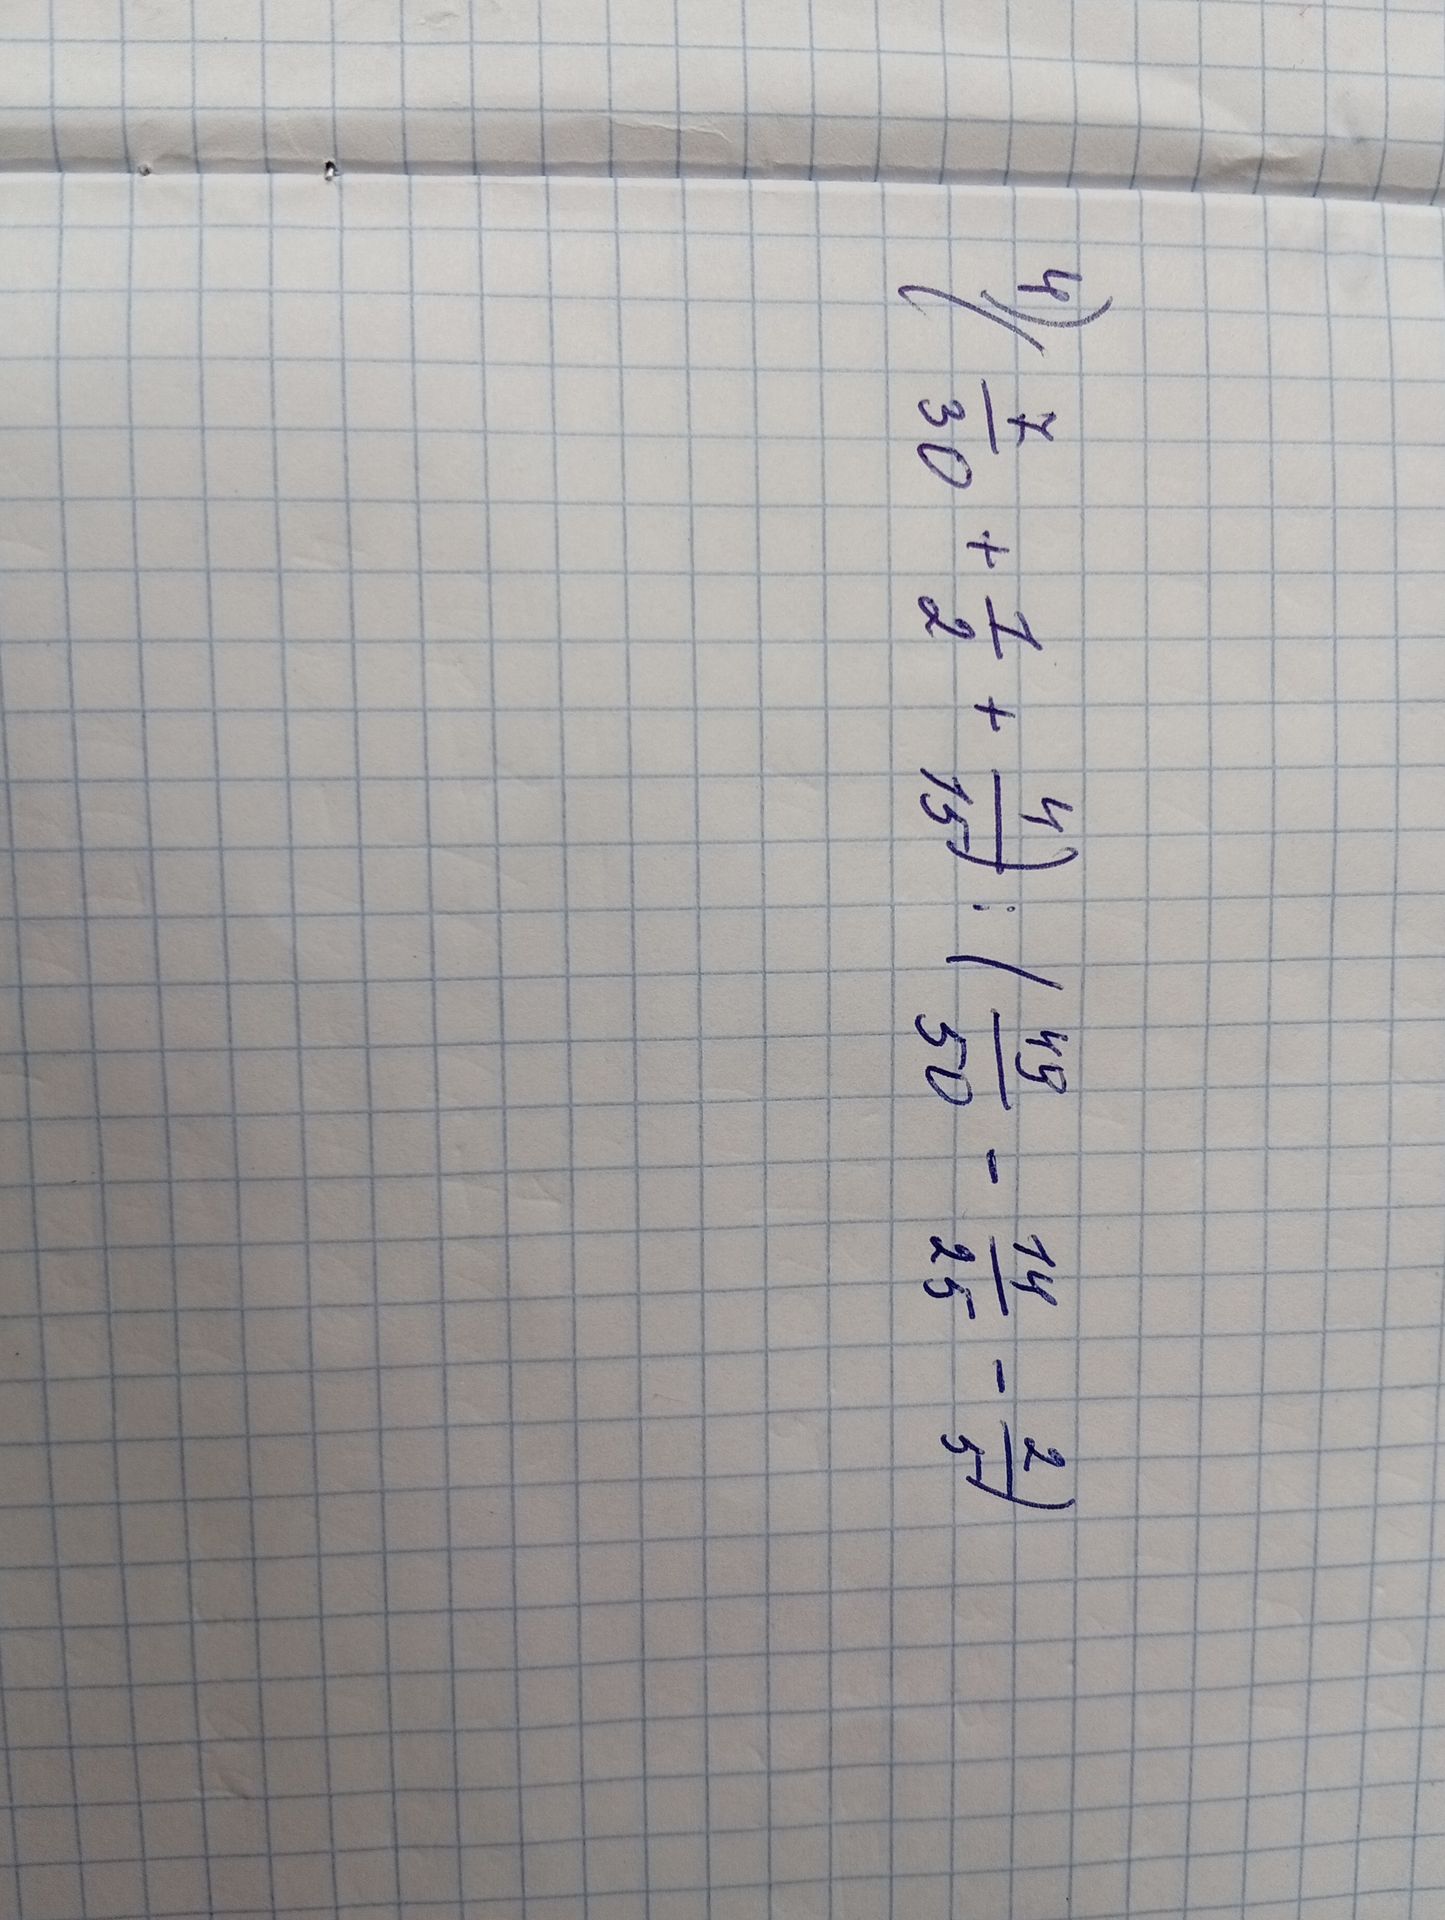 4) (7/30 + 1/2 + 4/15) : (49/50 - 14/25 - 2/5)